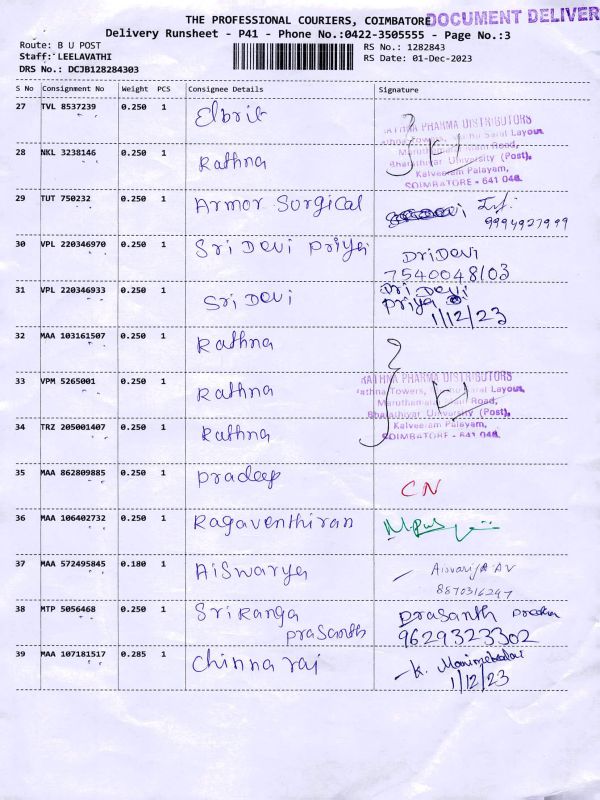 THE PROFESSIONAL COURIERS, COIMBATORE
DOCUMENT DELIVER
Delivery Runsheet - P41 - Phone No.:0422-3505555 - Page No.:3
Route: B U POST
RS No.: 1282843
Staff: LEELAVATHI
RS Date: 01-Dec-2023
DRS No.: DCJB128284303
S No Consignment No Weight PCS Consignee Details Signature
27 TVL 8537239 0.250 1 Elbrit
28 NKL 3238146 0.250 1 Rathna
RATHNA PHARMA DISTRIBUTORS
Road,
Bharathiyar University (Post),
Kalveeram Palayam,
COIMBATORE - 641 046.
29 TUT 750232 0.250 1 Armor Surgical
9994927999
30 VPL 220346970 0.250 1 Sri Devi Priya DriDevi
7540048103
31 VPL 220346933 0.250 1 Sri Devi Dri Devi
Priya
1/12/23
32 MAA 103161507 0.250 1 Rathna
33 VPM 5265001 0.250 1 Rathna
RATHNA PHARMA DISTRIBUTORS
Road,
Bharathiyar University (Post),
Kalveeram Palayam,
COIMBATORE - 641 046.
34 TRZ 205001407 0.250 1 Rathna
35 MAA 862809885 0.250 1 Pradeep CN
36 MAA 106402732 0.250 1 Ragaventhiran
37 MAA 572495845 0.180 1 Aiswarya Aisvariya AV
8870316247
38 MTP 5056468 0.250 1 Sri Ranga Prasanth
Prasanth 9629323302
39 MAA 107181517 0.285 1 Chinna raj K.
1/12/23